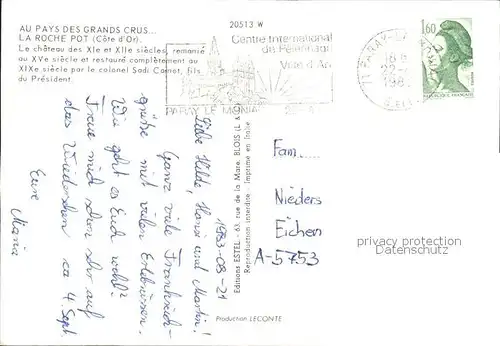 AU PAYS DES GRANDS CRUS...
LA ROCHE POT (Côte d'Or).
Le château des XIe et XIIe siècles, remanié
au XVe siècle et restauré complètement au
XIXe siècle par le colonel Sadi Carnot, fils
du Président.
20513 W
Centre International
de Pèlerinage
Ville d'Art
PARAY LE MONIAL
1,60
REPUBLIQUE FRANÇAISE
1983-08-21
Liebe Hilde, Hans und Martin!
Ganz viele Frankreich-
grüße mit vielen Erlebnissen.
Wie geht es Euch wohl?
Freue mich schon sehr auf
das Wiedersehen ca 4. Sept.
Eure
Maria
Editions ESTEL - 63, rue de la Maire, BLOIS (L &
Reproduction interdite - Imprimé en Italie
Fam.....
Nieders
Eichen
A-5753
privacy protection
Datenschutz
Production LECONTE